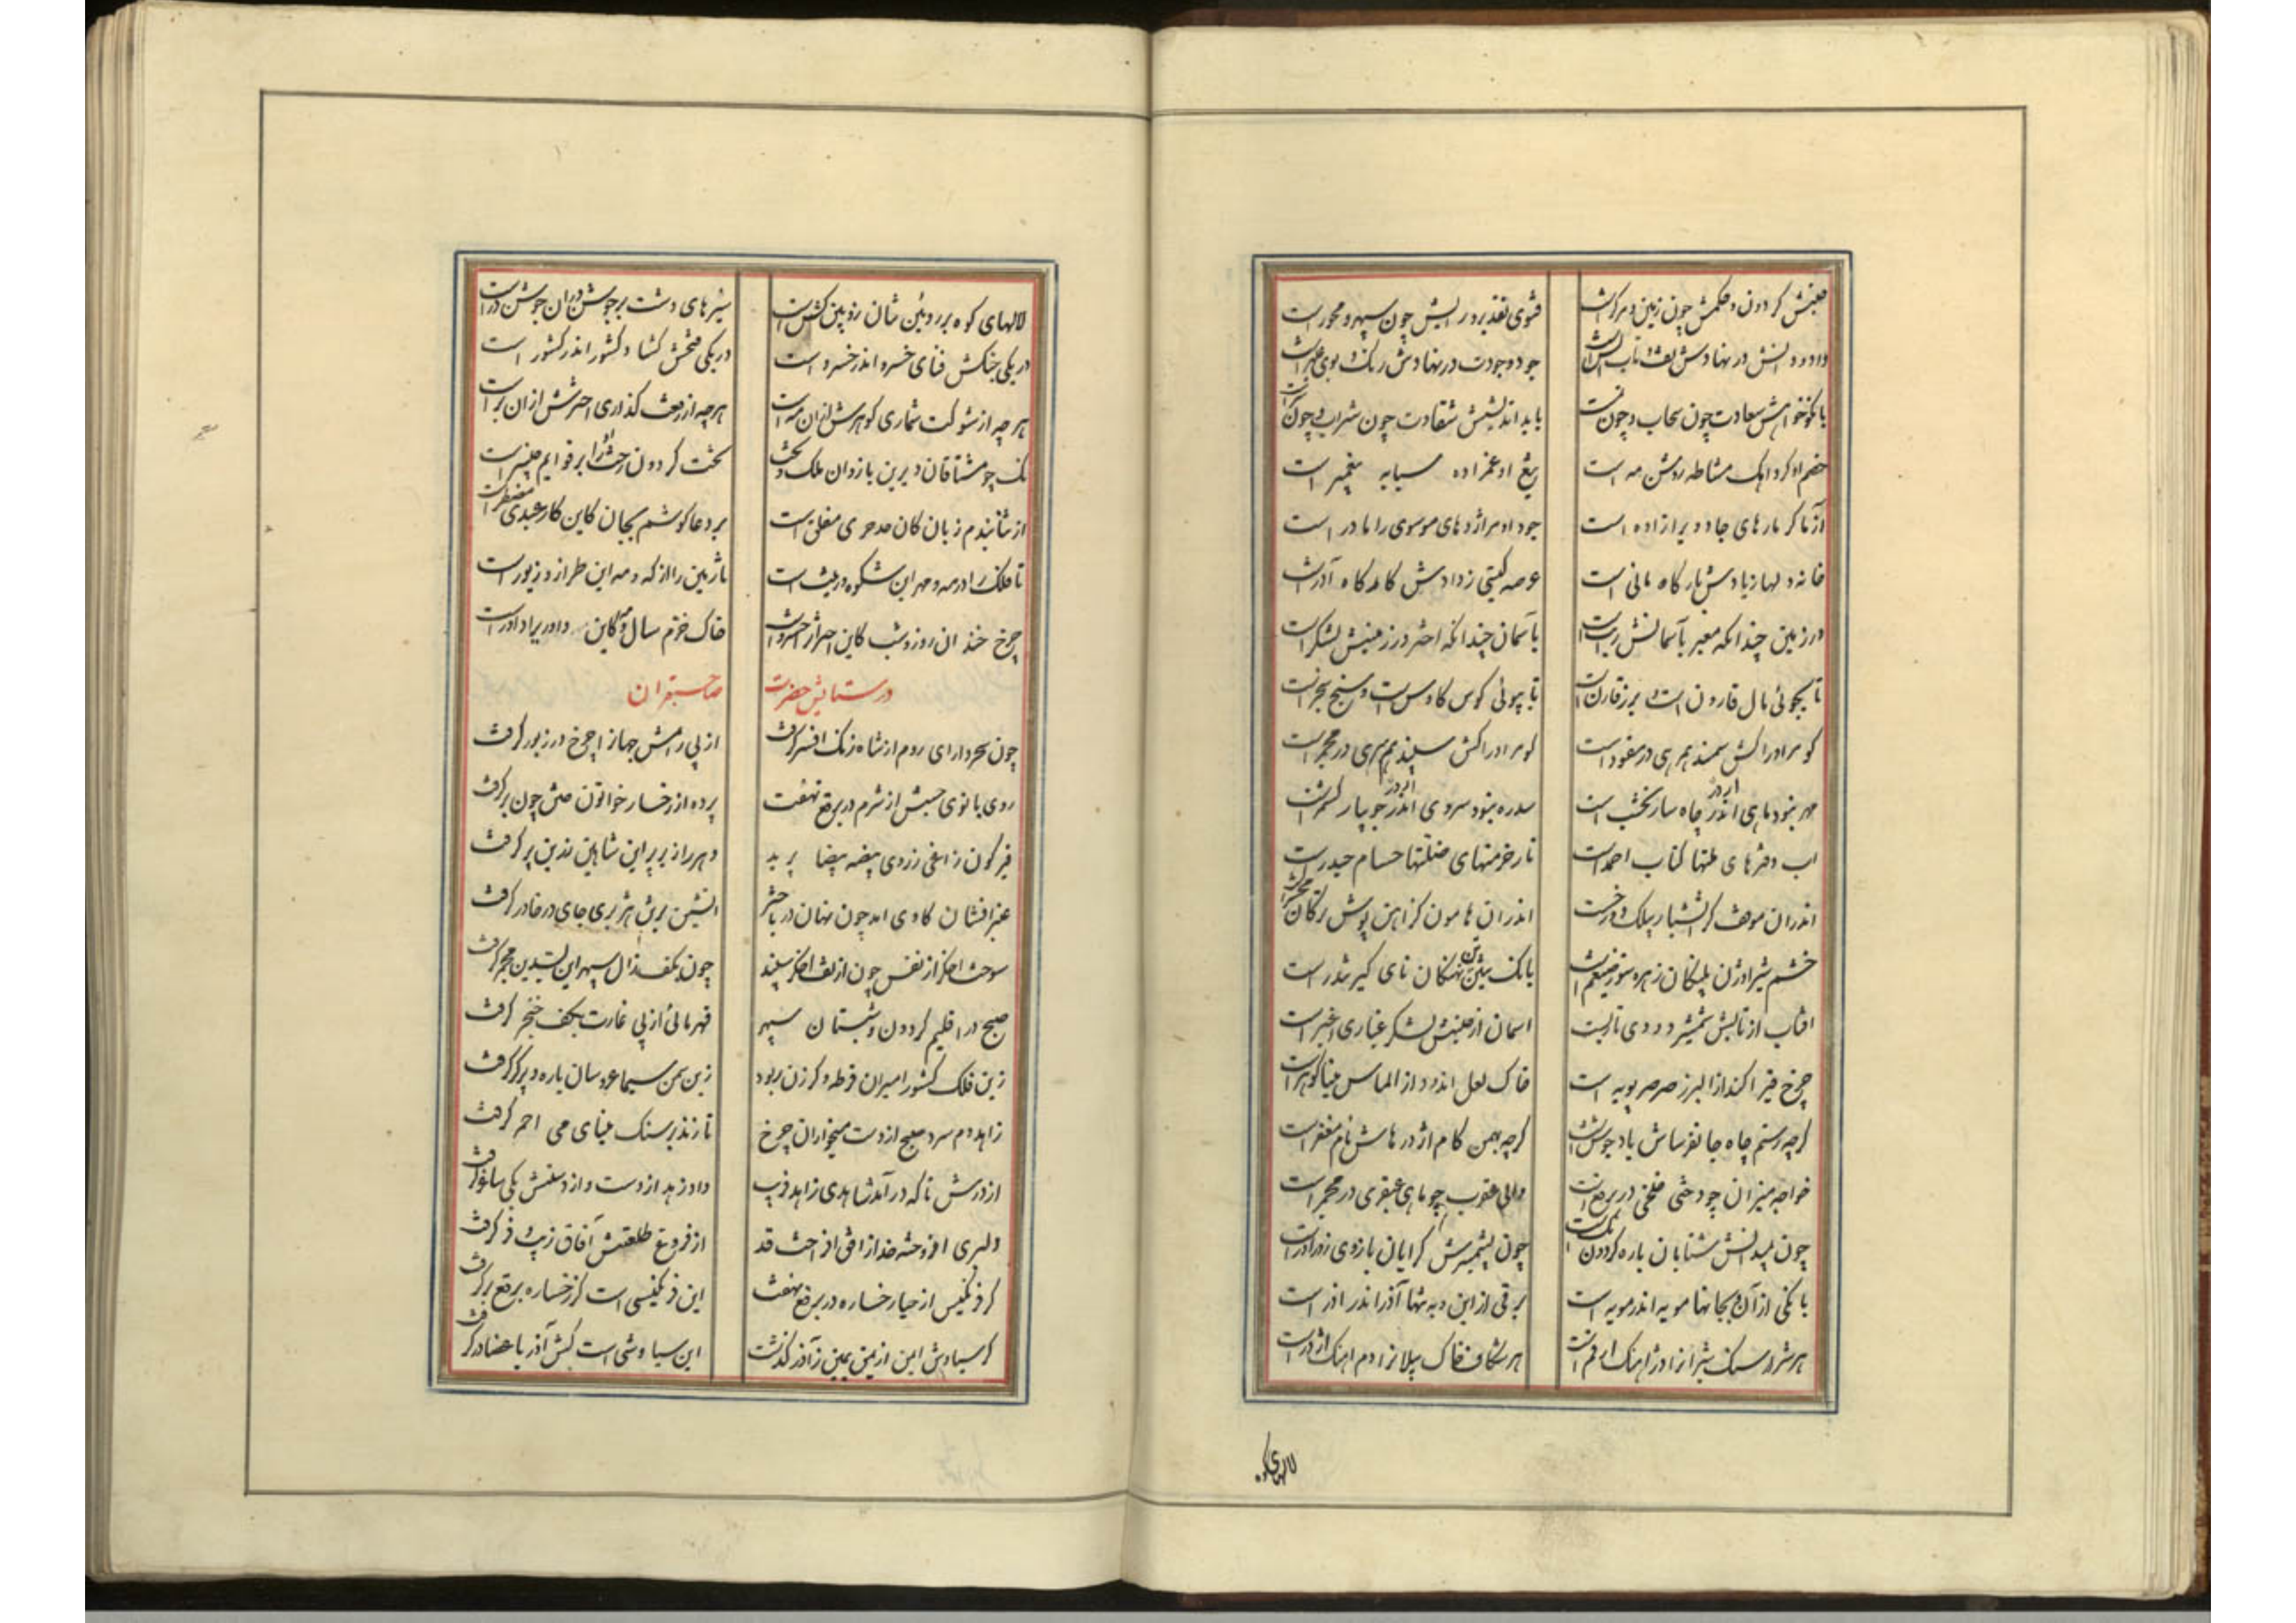 جنبش گردون و حکمش چون زمین و مرکز است    فتوی تقدیر و رایش چون سپهر و محور است
داد و دانش در نهادش    جود وجودت در نهادش رنک و بوی
با نکوخواهش سعادت چون سحاب و چون    با بد اندیشش شقاوت چون شراب و چون
خصم او کرد انک مشاطه روشن مه است    تیغ او غمزاده سبابه پیغمبر است
آزما کر مارهای جادو پرا زاده است    جود او مر اژدهای موسوی را مادر است
خانه دلها زیادش بارگاه مانی است    عرصه گیتی ز دادش کاهکاه آذر است
در زمین چندانکه معبر بآسمانش    بآسمان چندانکه اختر در زمینش لشکر است
تا بجوئی مال قارون است    تا بپوئی کوس کاوس است و سنج سنجر است
گو مر او را کش سمند    گو مر او را کش سپند
مهر نبود ماهی اندر چاه سار نخشب است    سدره نبود سروی اندر جویبار کشمر است
آب دفترهای ملتها کتاب احمد است    نار خرمنهای ضلتها حسام حیدر است
اندران موقف کز آتشبار بیلک    اندران هامون کز آهن پوش ترکان
خشم شیر اوژن پلنکان زهره سوز ضیغم است    بانک نهنکان نای گیر تندر است
آفتاب از تابش شمشیر دودی تار    آسمان از جنبش لشکر غباری اغبر است
چرخ قیر اکند از البرز صرصر پویه است    خاک لعل اندود از الماس مینا گوهر است
گرچه رستم چاه جانفرساش یاد جوشن است    گرچه بهمن کام اژدرهاش نام مغفر است
خواجه میزان چو دختی    والی عقرب چو ماهی عبقری در مجمر است
چون شتابان باره گردون    چون گرایان بازوی زورآور است
بانکی از آن و بجانها مویه اندر مویه است    برقی از این و به تنها آذر اندر آذر است
هر شرار سنک شیرانرا دژ آهنک ارقم است    هر شکاف خاک پیلانرا دم آهنک اژدر است
لالهای کوه
لالهای کوه بر روئین تنان روئین کش است    سبزهای دشت بر جوشن دران جوشن در است
در یکی جنکش فنای خسرو اندر خسرو است    در یکی فتحش گشاد کشور اندر کشور است
هر چه از شوکت شماری گوهرش زان    هر چه از رفعت گذاری اخترش از آن برتر است
نک چو مشتاقان دیرین بازوان ملک و    تخت گردون رخش را بر قوایم چنبر است
از ثنا بندم زبان کان مدحری مفلق است    بر دعا کوشم بجان کاین کار عبدی مضطر است
تا فلک را در مه و مهر این شکوه و زینت است    تا زمین را از که و مه این طراز و زیور است
چرخ خندان روز و شب کاین    خاک خرم سال و مه کاین داور
در ستایش حضرت    صاحبقران
چون سحر دارای روم از شاه زنک افسر گرفت    از پی رامش جهانرا چرخ در زیور گرفت
روی بانوی حبش از شرم در برقع نهفت    پرده از رخسار خواتون ختن چون بر گرفت
قیرگون زاغی ز روی بیضه بیضا پرید    دهر را زیر پر این شاهین زرین پر گرفت
عنبر افشان گاوی آمد چون نهان در باختر    آتشین هژبری جای در خاور گرفت
سوخت اخگر از نفس چون از تف اخگر سپند    چون بکف زال سپهر این بسدین مجمر گرفت
صبح در اقلیم گردون و شبستان سپهر    قهرمانی از پی غارت بکف خنجر گرفت
زین فلک کشور امیران قرطه و گرزن ربود    زین سمن سیما عروسان یاره و پرگر گرفت
زاهد دم سرد صبح از دست میخواران چرخ    تا زند بر سنک مینای می احمر گرفت
از درش ناگه درآمد شاهدی زاهد فریب    داد زهد از دست و از دستش یکی ساغر گرفت
دلبری افروخته خد از افق افراخت قد    از فروغ طلعتش آفاق زیب و فر گرفت
گر فرنگیس از حیا رخساره در برقع نهفت    این فرنگیسی است کز رخساره برقع بر گرفت
گر سیاوش ایمن از یمن یمین ز آذر گذشت    این سیاوشی است کش آذر باعضا در گرفت